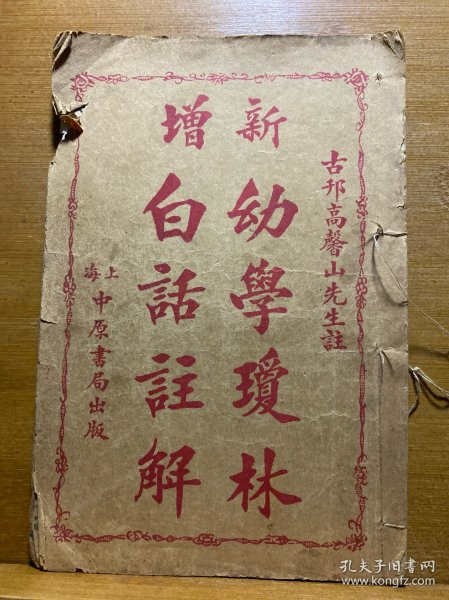 古邦高馨山先生註
新增
幼學瓊林
白話註解
上海
中原書局出版
孔夫子旧书网
www.kongfz.com